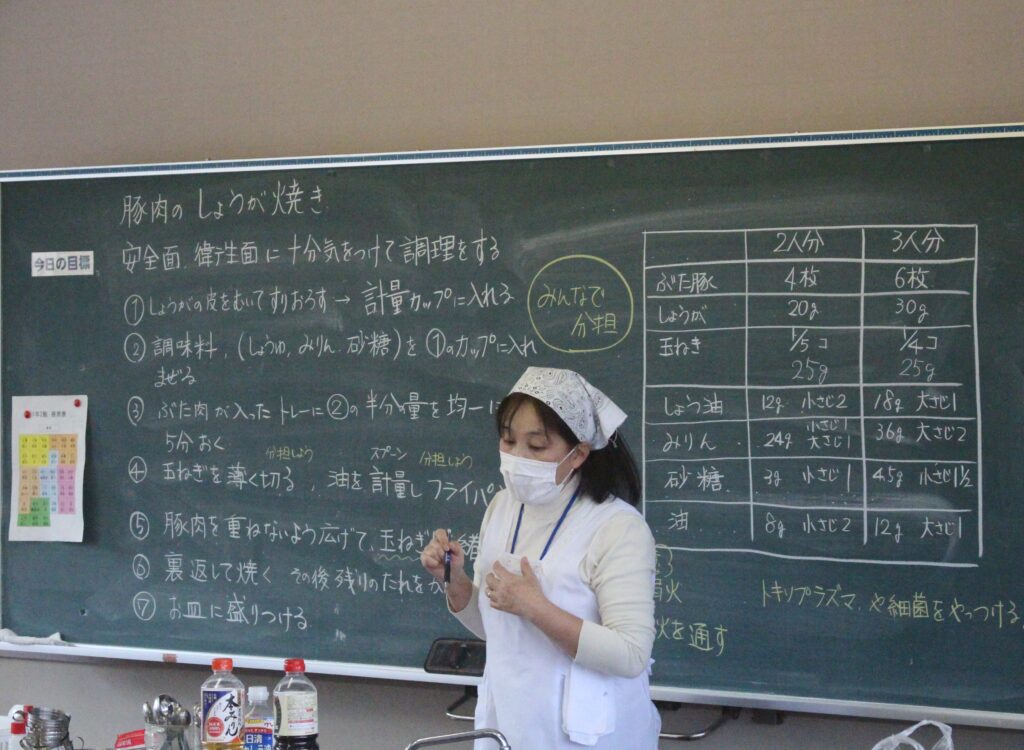 豚肉のしょうが焼き
今日の目標
安全面、衛生面に十分気をつけて調理をする
①しょうがの皮をむいてすりおろす → 計量カップに入れる
②調味料、(しょうゆ、みりん、砂糖)を①のカップに入れ
まぜる
みんなで
分担
③ぶた肉が入ったトレーに②の半分の量を均一に
5分おく
分担しよう スプーン 分担しよう
④玉ねぎを薄く切る、油を計量しフライパ
⑤豚肉を重ねないよう広げて、玉ねぎ
⑥裏返して焼く その後残りのたれを
⑦お皿に盛りつける
2人分 3人分
ぶた豚 4枚 6枚
しょうが 20g 30g
玉ねぎ 1/5コ 1/4コ
25g 25g
しょう油 12g 小さじ2 18g 大さじ1
みりん 24g 小さじ1 大さじ1 36g 大さじ2
砂糖 3g 小さじ1 4.5g 小さじ1½
油 8g 小さじ2 12g 大さじ1
トキソプラズマ、や細菌をやっつける
火
火を通す
本みりん
日清